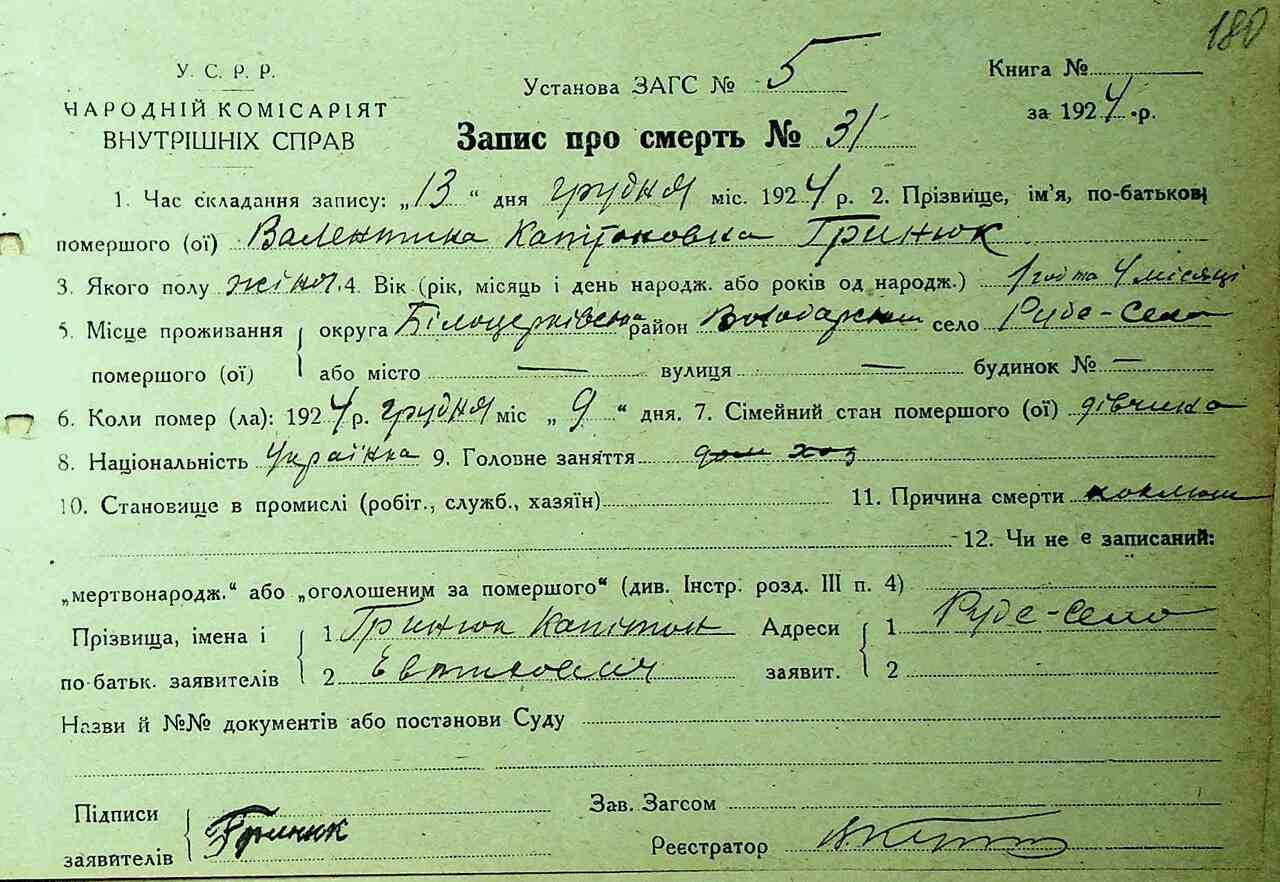 180
У. С. Р. Р.
НАРОДНІЙ КОМІСАРІЯТ
ВНУТРІШНІХ СПРАВ
Установа ЗАГС № 5
Книга №
за 1924 р.
Запис про смерть № 31
1. Час складання запису: „13“ дня грудня міс. 1924 р. 2. Прізвище, ім'я, по-батькові
помершого (ої) Валентина Капітоновна Гринюк
3. Якого полу жіноч. 4. Вік (рік, місяць і день народж. або років од народж.) 1 год та 4 місяці
5. Місце проживання округа Білоцерківська район Володарський село Рубе-Село
помершого (ої) або місто — вулиця — будинок № —
6. Коли помер (ла): 1924 р. грудня міс „9“ дня. 7. Сімейний стан помершого (ої) дівчина
8. Національність Українка 9. Головне заняття дом хоз
10. Становище в промислі (робіт., служб., хазяїн) 11. Причина смерти коклюш
12. Чи не є записаний:
„мертвонародж.“ або „оголошеним за помершого“ (див. Інстр. розд. III п. 4)
Прізвища, імена і 1 Гринюк Капітон Адреси 1 Рубе-Село
по-батьк. заявителів 2 заявит. 2
Назви й №№ документів або постанови Суду
Підписи Зав. Загсом
заявителів Гринюк Реєстратор